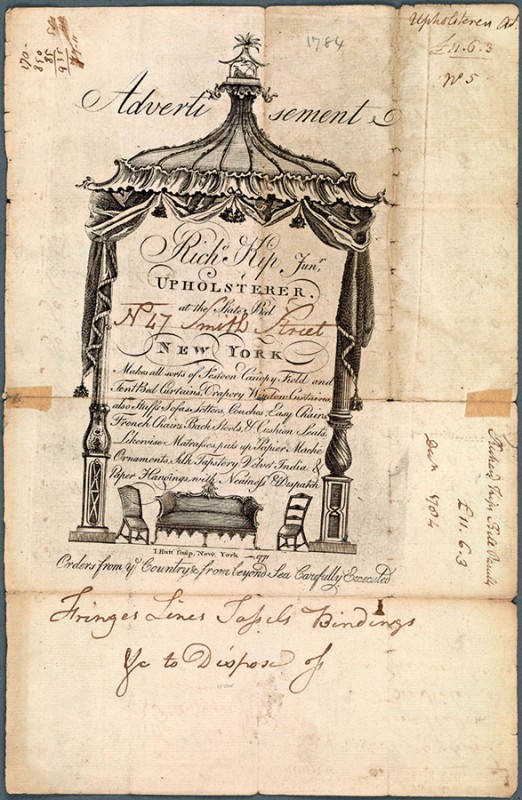 Upholsterer
£11.6.3
No 5
1784
Advertisement
Richd. Kip Junr.
UPHOLSTERER.
at the White Bed
No 47 Smith Street
NEW YORK
Makes all sorts of Festoon Canopy Field and
Tent Bed Curtains, Drapery Window Curtains
also Stuffs Sofas, Settees, Couches Easy Chairs
French Chairs, Back Stools & Cushion Seats
Likewise Matrasses, puts up Papier Machie
Ornaments, Silk Tapestry Velvet India &
Paper Hangings, with Neatness & Dispatch
I. Hutt Sculp. New York
Orders from ye Country & from beyond Sea Carefully Executed
Richard Kips
£11.6.3
1784
Fringes Lines Tassels Bindings
&c to Dispose of